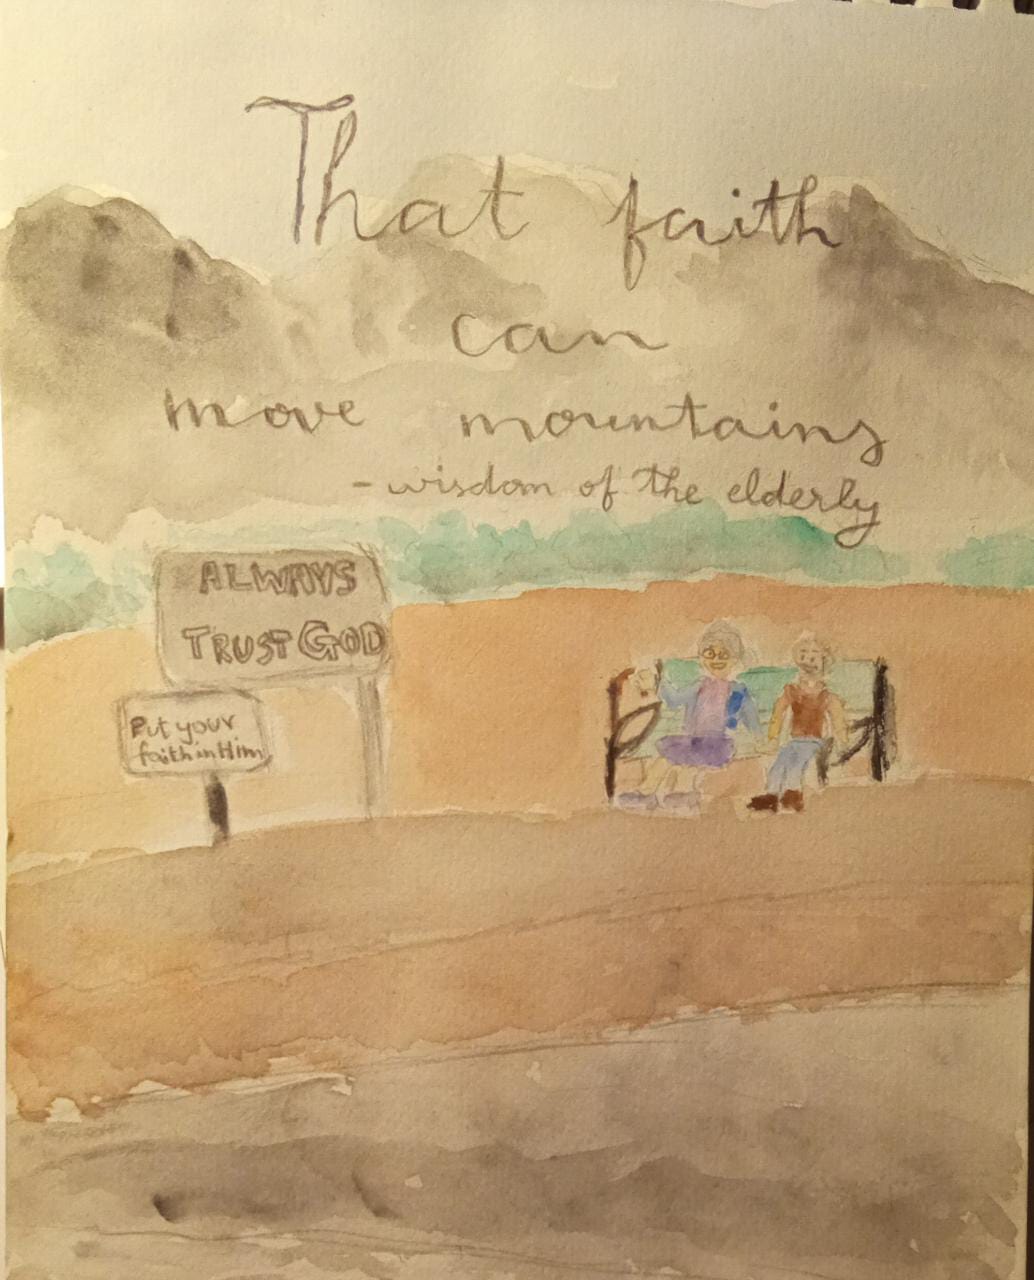 That faith
can
move mountains
- wisdom of the elderly
ALWAYS
TRUST GOD
Put your
faith in Him